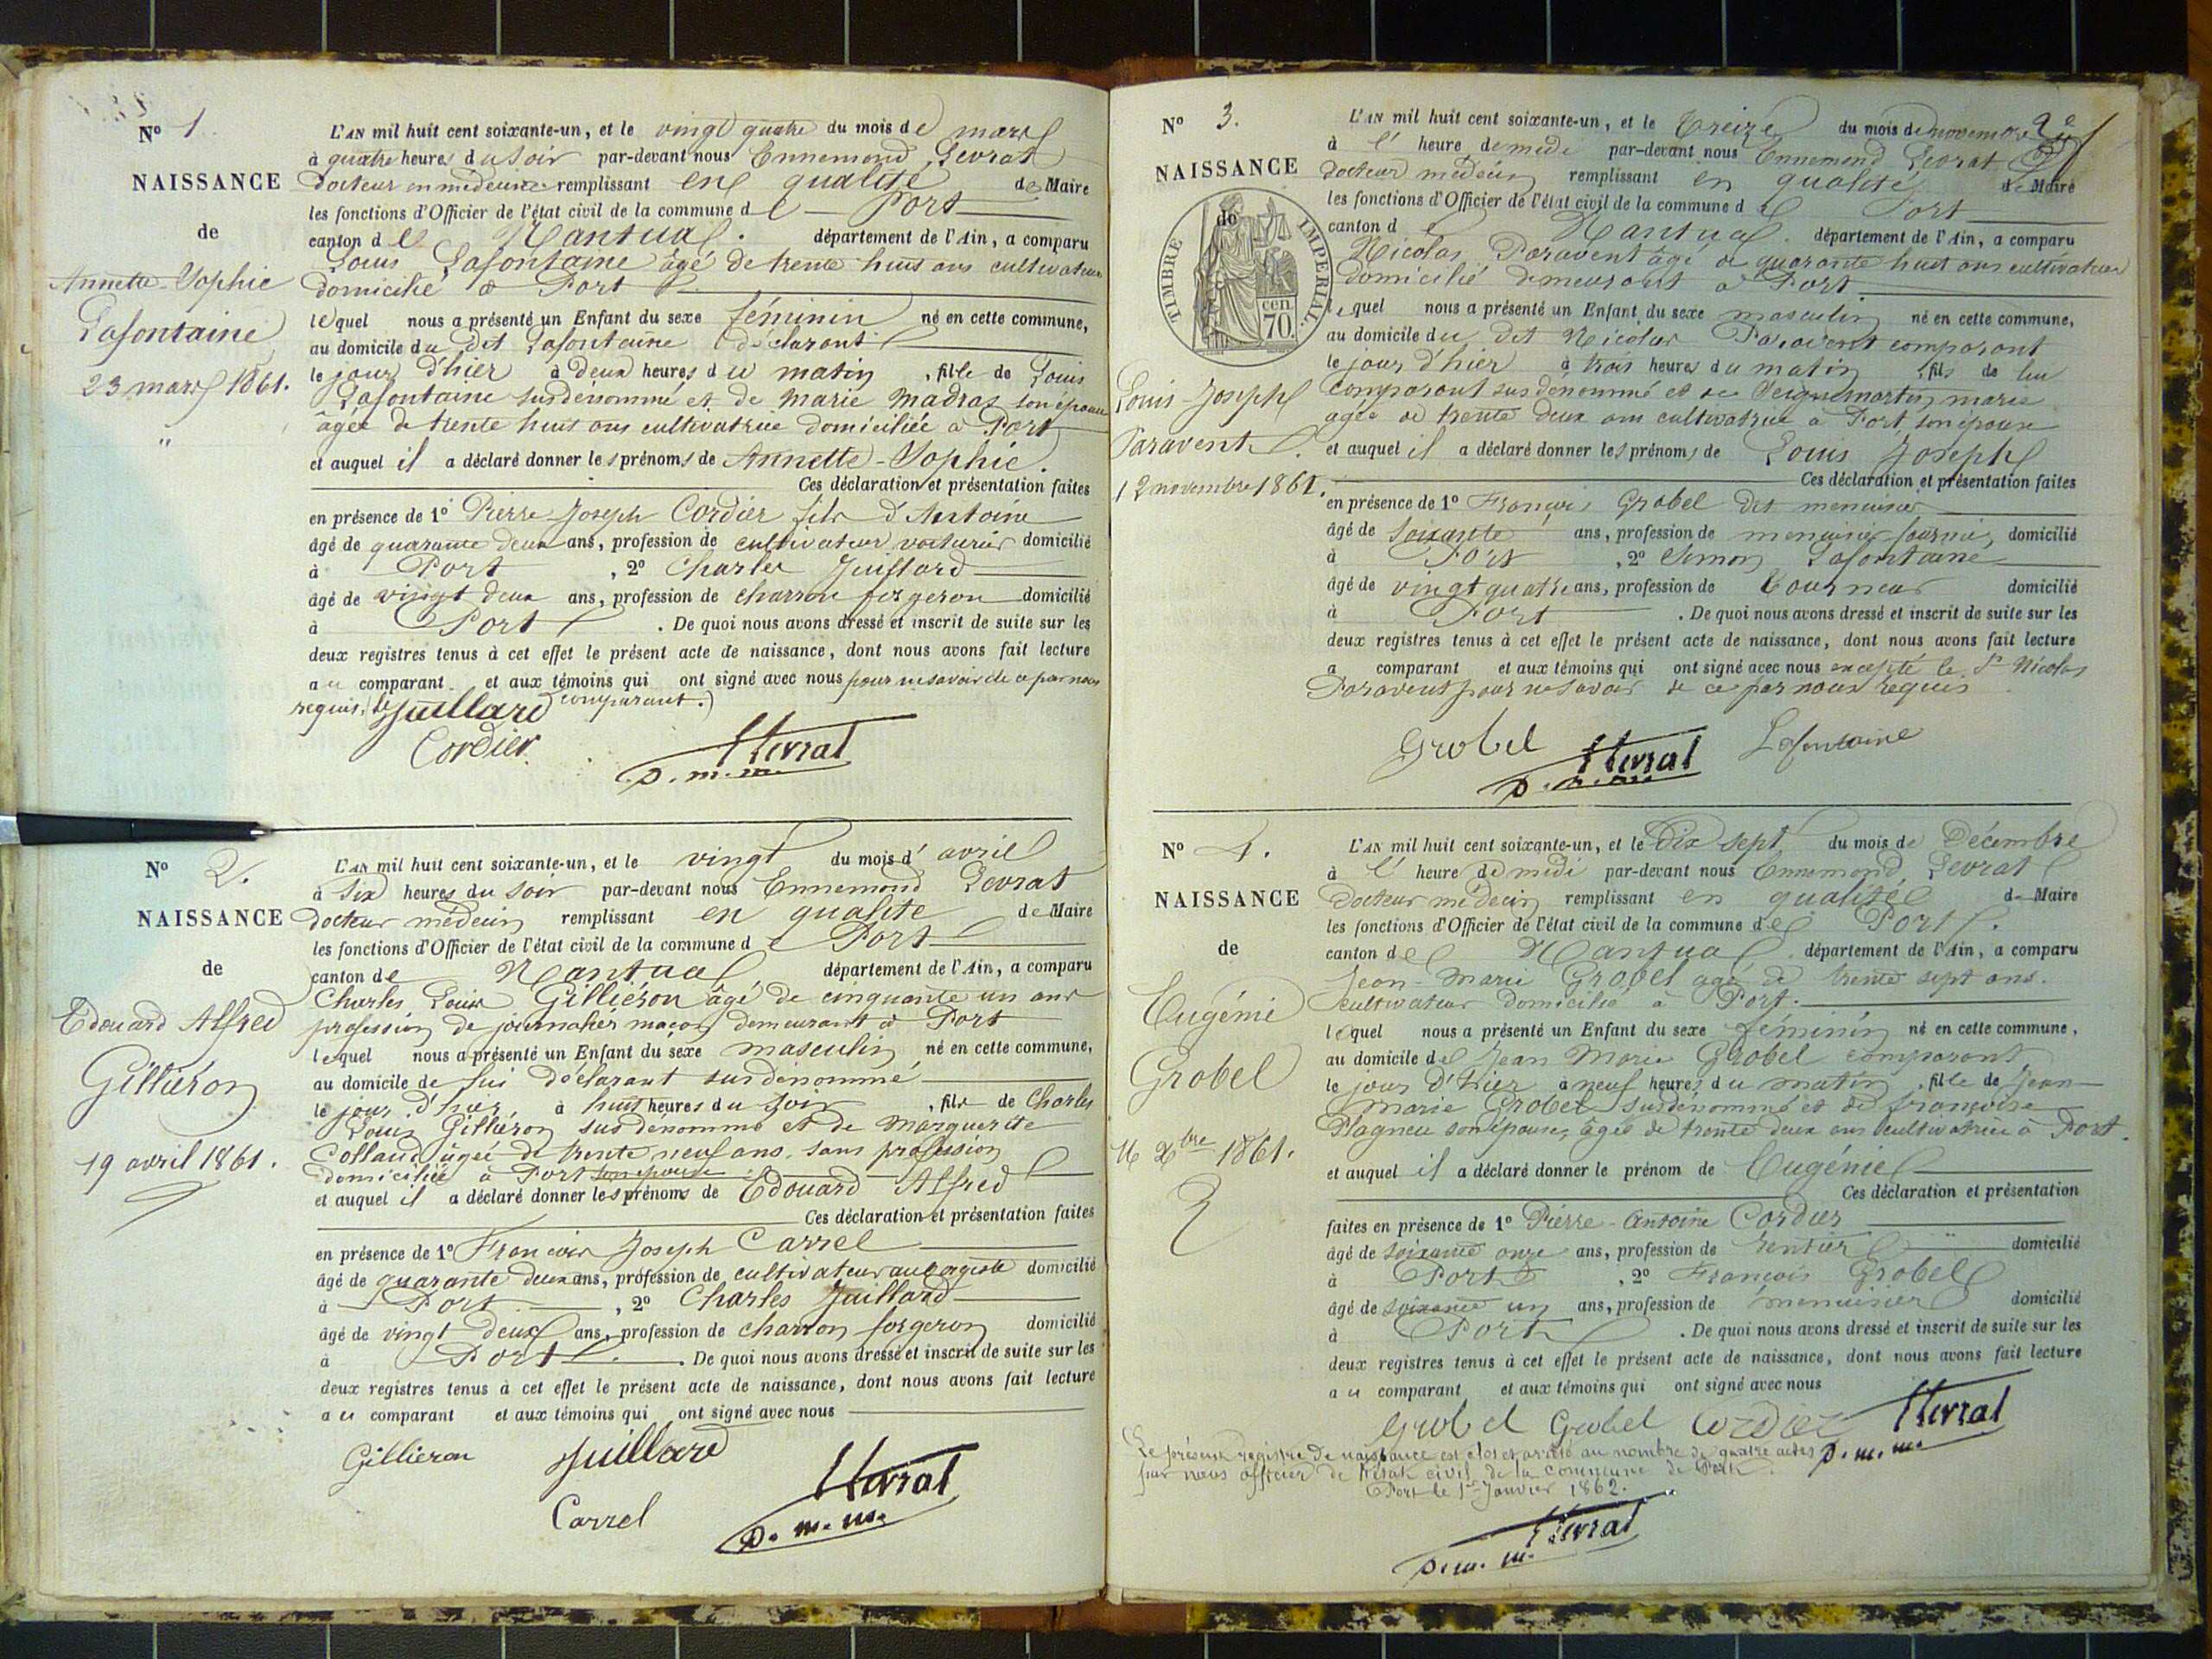 N° 1
NAISSANCE
de
Annette-Sophie
Lafontaine
23 mars 1861.
"
L'AN mil huit cent soixante-un, et le vingt quatre du mois de mars
à quatre heures du soir par-devant nous Ennemond Levrat
docteur en médecine remplissant en qualité de Maire
les fonctions d'Officier de l'état civil de la commune de Port
canton de Nantua. département de l'Ain, a comparu
Louis Lafontaine âgé de trente huit ans cultivateur
domicilié à Port
lequel nous a présenté un Enfant du sexe féminin né en cette commune,
au domicile du dit Lafontaine déclarant
le jour d'hier à deux heures du matin, fille de Louis
Lafontaine susdénommé et de Marie Madras son épouse
âgée de trente huit ans cultivatrice domiciliée à Port
et auquel il a déclaré donner les prénoms de Annette-Sophie.
Ces déclaration et présentation faites
en présence de 1° Pierre Joseph Cordier fils d'Antoine
âgé de quarante deux ans, profession de cultivateur voiturier domicilié
à Port, 2° Charles Juillard
âgé de vingt deux ans, profession de charron forgeron domicilié
à Port. De quoi nous avons dressé et inscrit de suite sur les
deux registres tenus à cet effet le présent acte de naissance, dont nous avons fait lecture
au comparant et aux témoins qui ont signé avec nous pour ne savoir de ce par nous
requis, (le comparant.)
Juillard
Cordier
Levrat
D. m. m.
N° 2.
NAISSANCE
de
Edouard Alfred
Gilliéron
19 avril 1861.
L'AN mil huit cent soixante-un, et le vingt du mois d'avril
à six heures du soir par-devant nous Ennemond Levrat
docteur médecin remplissant en qualité de Maire
les fonctions d'Officier de l'état civil de la commune de Port
canton de Nantua département de l'Ain, a comparu
Charles Louis Gilliéron âgé de cinquante un ans
profession de journalier maçon demeurant à Port
lequel nous a présenté un Enfant du sexe masculin né en cette commune,
au domicile de lui déclarant susdénommé
le jour d'hier, à huit heures du soir, fils de Charles
Louis Gilliéron susdénommé et de Marguerite
Collaud âgée de trente neuf ans, sans profession
domiciliée à Port son épouse
et auquel il a déclaré donner les prénoms de Edouard Alfred
Ces déclaration et présentation faites
en présence de 1° François Joseph Carrel
âgé de quarante deux ans, profession de cultivateur aubergiste domicilié
à Port, 2° Charles Juillard
âgé de vingt deux ans, profession de charron forgeron domicilié
à Port. De quoi nous avons dressé et inscrit de suite sur les
deux registres tenus à cet effet le présent acte de naissance, dont nous avons fait lecture
au comparant et aux témoins qui ont signé avec nous
Gilliéron Juillard
Carrel
Levrat
D. m. m.
2e
N° 3.
NAISSANCE
de
TIMBRE IMPERIAL.
70 cen
Louis-Joseph
Paravent.
12 novembre 1861.
L'AN mil huit cent soixante-un, et le treize du mois de novembre
à l'heure de midi par-devant nous Ennemond Levrat
docteur médecin remplissant en qualité de Maire
les fonctions d'Officier de l'état civil de la commune de Port
canton de Nantua département de l'Ain, a comparu
Nicolas Paravent âgé de quarante huit ans cultivateur
domicilié demeurant à Port
lequel nous a présenté un Enfant du sexe masculin né en cette commune,
au domicile du dit Nicolas Paravent comparant
le jour d'hier à trois heures du matin, fils de lui
comparant susdénommé et de Seignemartin marie
âgée de trente deux ans cultivatrice à Port, son épouse
et auquel il a déclaré donner les prénoms de Louis Joseph
Ces déclaration et présentation faites
en présence de 1° François Grobel dit menuisier
âgé de soixante ans, profession de menuisier domicilié
à Port, 2° Simon Lafontaine
âgé de vingt quatre ans, profession de tourneur domicilié
à Port. De quoi nous avons dressé et inscrit de suite sur les
deux registres tenus à cet effet le présent acte de naissance, dont nous avons fait lecture
a comparant et aux témoins qui ont signé avec nous excepté le Sr Nicolas
Paravent pour ne savoir de ce par nous requis
Grobel Levrat Lafontaine
D. m. m.
N° 4.
NAISSANCE
de
Eugénie
Grobel
16 Xbre 1861.
L'AN mil huit cent soixante-un, et le dix sept du mois de Décembre
à l'heure de midi par-devant nous Ennemond Levrat
docteur médecin remplissant en qualité de Maire
les fonctions d'Officier de l'état civil de la commune de Port.
canton de Nantua département de l'Ain, a comparu
Jean-Marie Grobel agé de trente sept ans.
cultivateur domicilié à Port.
lequel nous a présenté un Enfant du sexe féminin né en cette commune,
au domicile de Jean Marie Grobel comparant
le jour d'hier à neuf heures du matin, fille de Jean
Marie Grobel susdénommé et de françoise
Magneu son épouse, âgée de trente deux ans cultivatrice à Port.
et auquel il a déclaré donner le prénom de Eugénie
Ces déclaration et présentation
faites en présence de 1° Pierre-Antoine Cordier
âgé de soixante onze ans, profession de rentier domicilié
à Port, 2° François Grobel
âgé de soixante un ans, profession de menuisier domicilié
à Port. De quoi nous avons dressé et inscrit de suite sur les
deux registres tenus à cet effet le présent acte de naissance, dont nous avons fait lecture
au comparant et aux témoins qui ont signé avec nous
Grobel Grobel Cordier Levrat
D. m. m.
Le présent registre de naissance est clos et arrêté au nombre de quatre actes
par nous officier de l'état civil de la commune de Port.
Port le 1er Janvier 1862.
Levrat
D. m. m.